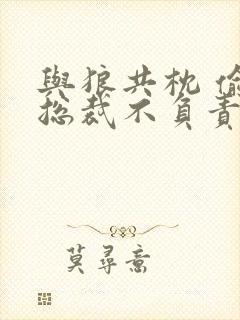 與狼共枕 偷
總裁不負責
莫尋意